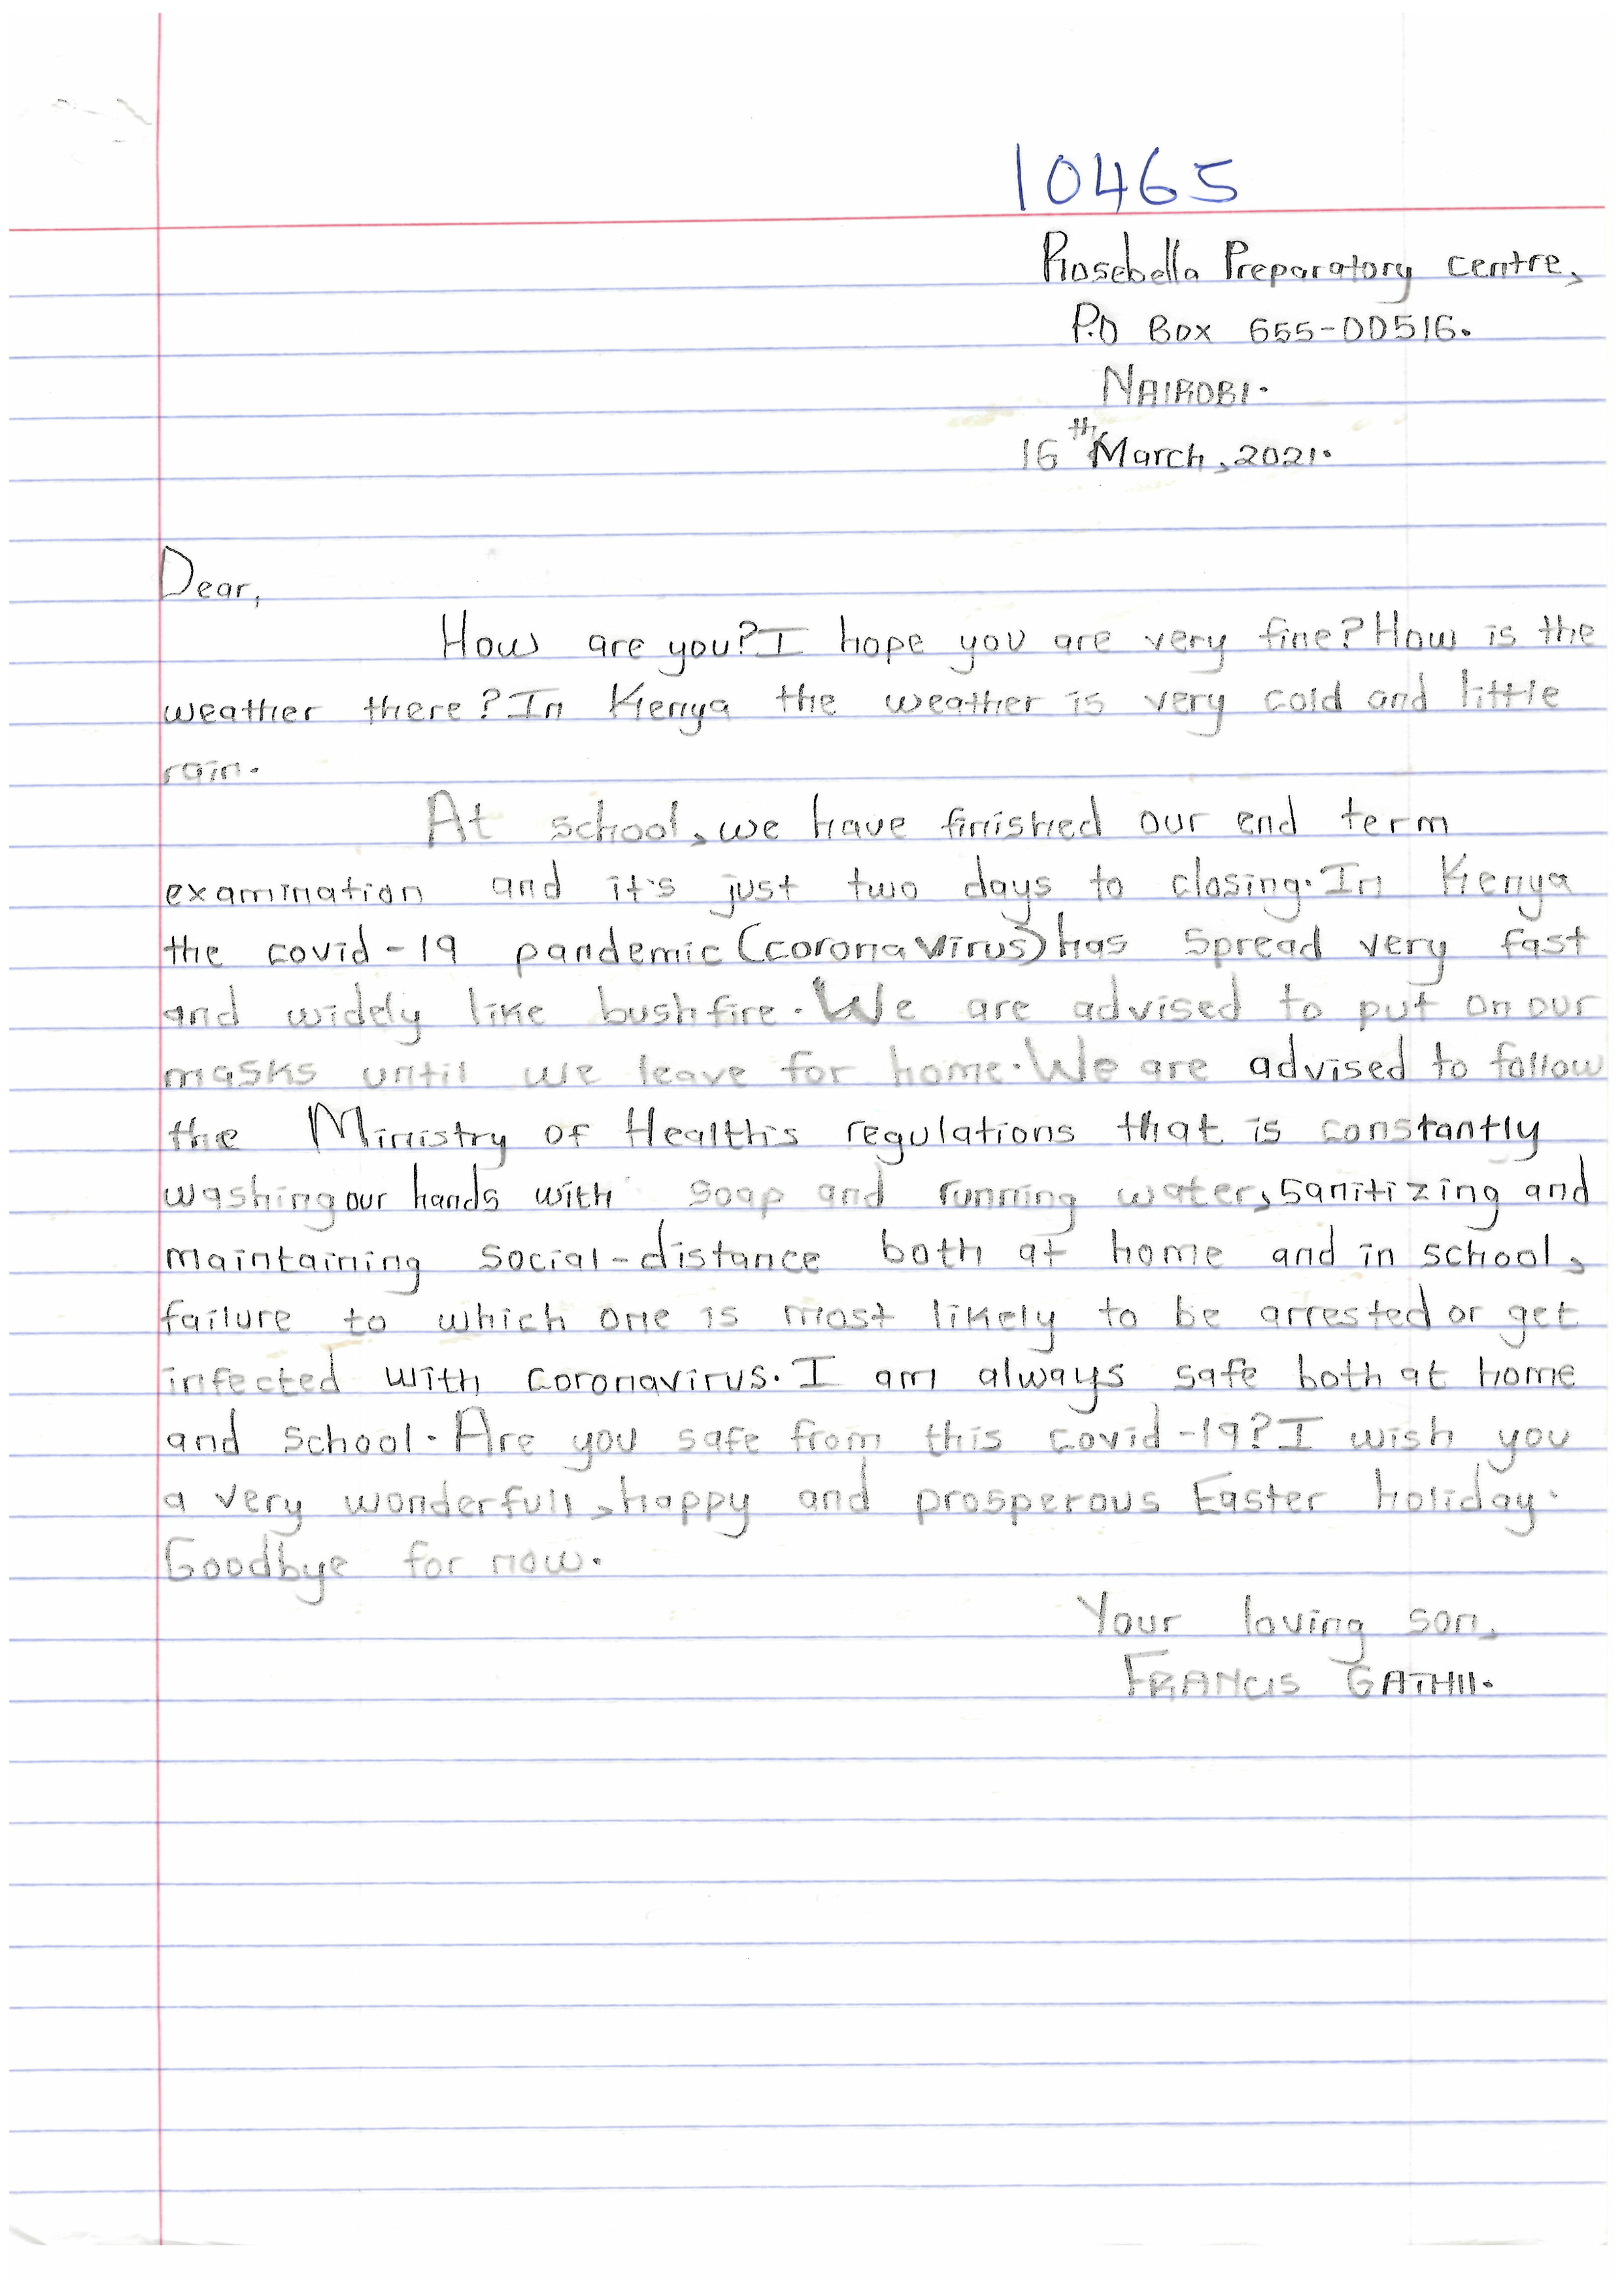 10465
Rosebella Preparatory centre,
P.O Box 655-00516.
NAIROBI.
16th March, 2021.
Dear,
How are you? I hope you are very fine? How is the
weather there? In Kenya the weather is very cold and little
rain.
At school, we have finished our end term
examination and it's just two days to closing. In Kenya
the covid-19 pandemic (corona virus) has spread very fast
and widely like bushfire. We are advised to put on our
masks until we leave for home. We are advised to follow
the Ministry of Health's regulations that is constantly
washing our hands with soap and running water, sanitizing and
maintaining social-distance both at home and in school,
failure to which one is most likely to be arrested or get
infected with coronavirus. I am always safe both at home
and school. Are you safe from this covid-19? I wish you
a very wonderfull, happy and prosperous Easter holiday.
Goodbye for now.
Your loving son,
FRANCIS GATHII.